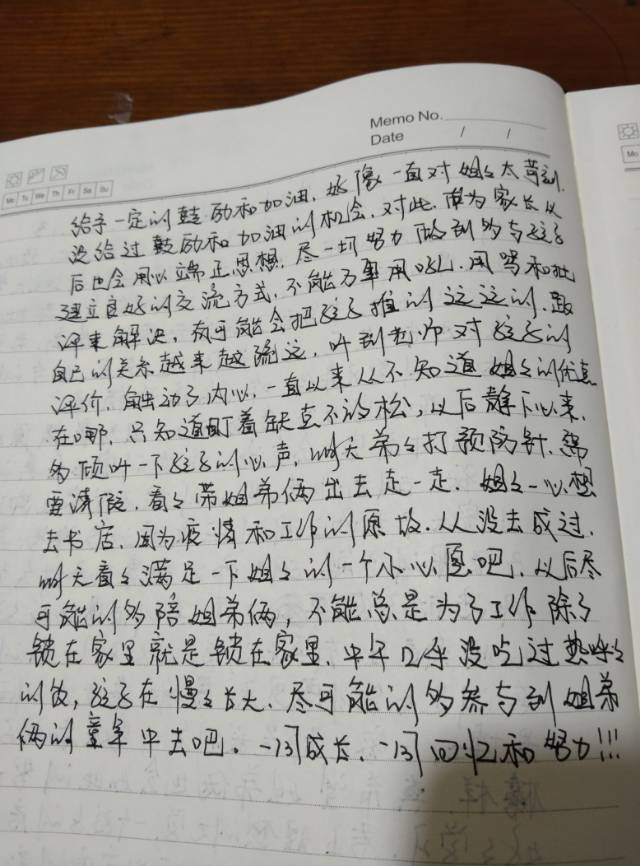 Memo No.
Date / /
Mo Tu We Th Fr Sa Su
Mo
给予一定的鼓励和加油，好像一直对姐姐太苛刻，
没给过鼓励和加油的机会，对此，作为家长从
后也会用心端正思想，尽一切努力做到多与孩子
建立良好的交流方式，不能万事用吼，用骂和批
评来解决，有可能会把孩子推的远远的，跟
自己的关系越来越疏远，听到老师对孩子的
评价，触动了内心，一直以来从不知道姐姐的优点
在哪，只知道盯着缺点不放松，以后静下心来，
多倾听一下孩子的心声，明天弟弟打预防针，需
要请假，看看带姐弟俩出去走一走，姐姐一心想
去书店，因为疫情和工作的原故，从没去成过，
明天看看满足一下姐姐的一个小心愿吧，以后尽
可能的多陪姐弟俩，不能总是为了工作除了
锁在家里就是锁在家里，中午几乎没吃过热呼呼
的饭，孩子在慢慢长大，尽可能的多参与到姐弟
俩的童年中去吧，一切成长，一切回忆和努力!!!